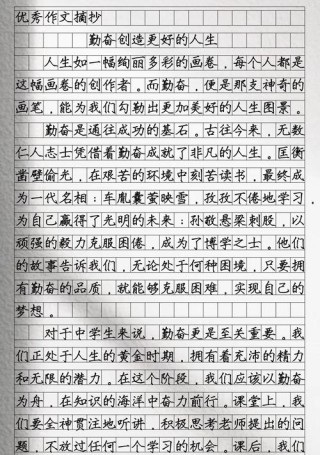 优秀作文摘抄
勤奋创造更好的人生
人生如一幅绚丽多彩的画卷，每个人都是
这幅画卷的创作者。而勤奋，便是那支神奇的
画笔，能为我们勾勒出更加美好的人生图景。
勤奋是通往成功的基石。古往今来，无数
仁人志士凭借着勤奋成就了非凡的人生。匡衡
凿壁偷光，在艰苦的环境中刻苦读书，最终成
为一代名相；车胤囊萤映雪，孜孜不倦地学习，
为自己赢得了光明的未来；孙敬悬梁刺股，以
顽强的毅力克服困倦，成为了博学之士。他们
的故事告诉我们，无论处于何种困境，只要拥
有勤奋的品质，就能够克服困难，实现自己的
梦想。
对于中学生来说，勤奋更是至关重要。我
们正处于人生的黄金时期，拥有着充沛的精力
和无限的潜力。在这个阶段，我们应该以勤奋
为舟，在知识的海洋中奋力前行。课堂上，我
们要全神贯注地听讲，积极思考老师提出的问
题，不放过任何一个学习的机会。课后，我们